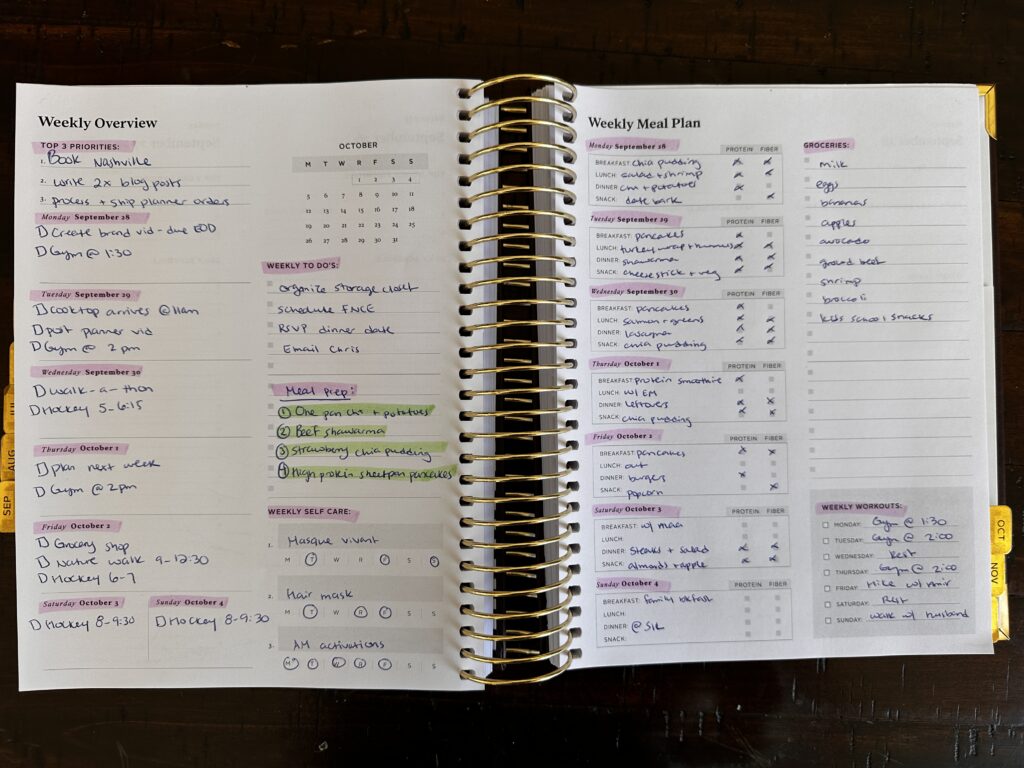 Weekly Overview
TOP 3 PRIORITIES:
1. Book Nashville
2. write 2x blog posts
3. process + ship planner orders
Monday September 28
Create brand vid - due EOD
Gym @ 1:30
Tuesday September 29
Cooktop arrives @ 11am
post planner vid
Gym @ 2 pm
Wednesday September 30
walk-a-thon
Hockey 5-6:15
Thursday October 1
plan next week
Gym @ 2pm
Friday October 2
Grocery shop
Nature walk 9-12:30
Hockey 6-7
Saturday October 3
Hockey 8-9:30
Sunday October 4
Hockey 8-9:30
OCTOBER
M T W R F S S
1 2 3 4
5 6 7 8 9 10 11
12 13 14 15 16 17 18
19 20 21 22 23 24 25
26 27 28 29 30 31
WEEKLY TO DO'S:
organize storage closet
schedule FNCE
RSVP dinner date
Email Chris
Meal prep:
1 One pan chx + potatoes
2 Beef shawarma
3 Strawberry chia pudding
4 High protein sheetpan pancakes
WEEKLY SELF CARE:
1. Masque vivant
M T W R F S S
2. Hair mask
M T W R F S S
3. AM activations
M T W R F S S
Weekly Meal Plan
Monday September 28 PROTEIN FIBER
BREAKFAST: chia pudding
LUNCH: salad + shrimp
DINNER: chx + potatoes
SNACK: date bark
Tuesday September 29 PROTEIN FIBER
BREAKFAST: pancakes
LUNCH: turkey wrap + hummus
DINNER: shawarma
SNACK: cheese stick + veg
Wednesday September 30 PROTEIN FIBER
BREAKFAST: pancakes
LUNCH: salmon + greens
DINNER: lasagna
SNACK: chia pudding
Thursday October 1 PROTEIN FIBER
BREAKFAST: protein smoothie
LUNCH: w/ EM
DINNER: leftovers
SNACK: chia pudding
Friday October 2 PROTEIN FIBER
BREAKFAST: pancakes
LUNCH: out
DINNER: burgers
SNACK: popcorn
Saturday October 3 PROTEIN FIBER
BREAKFAST: w/
LUNCH:
DINNER: Steaks + salad
SNACK: almonds + apple
Sunday October 4 PROTEIN FIBER
BREAKFAST: family bkfast
LUNCH:
DINNER: @ SIL
SNACK:
GROCERIES:
milk
eggs
bananas
apples
avocado
ground beef
shrimp
broccoli
kids school snacks
WEEKLY WORKOUTS:
MONDAY: Gym @ 1:30
TUESDAY: Gym @ 2:00
WEDNESDAY: Rest
THURSDAY: Gym @ 2:00
FRIDAY: Hike w/ Amir
SATURDAY: Rest
SUNDAY: walk w/ husband
JUL
AUG
SEP
OCT
NOV